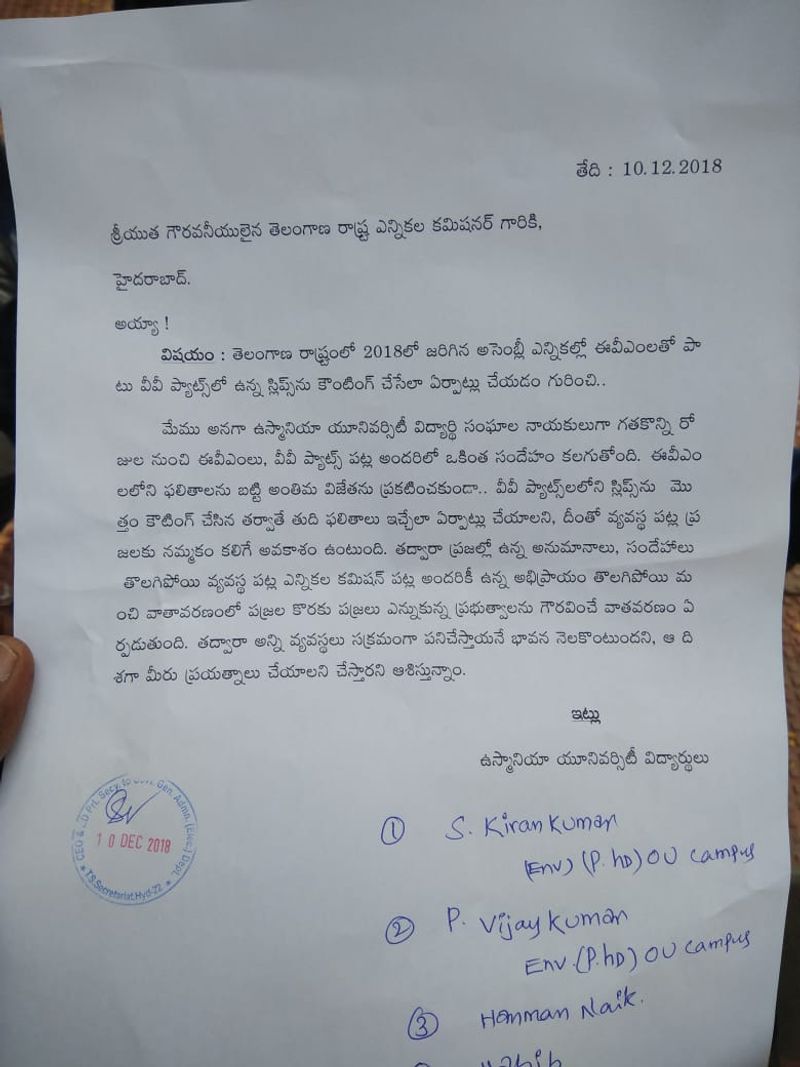 తేది : 10.12.2018
శ్రీయుత గౌరవనీయులైన తెలంగాణ రాష్ట్ర ఎన్నికల కమిషనర్ గారికి,
హైదరాబాద్.
అయ్యా !
విషయం : తెలంగాణ రాష్ట్రంలో 2018లో జరిగిన అసెంబ్లీ ఎన్నికల్లో ఈవీఎంలతో పా
టు వీవీ ప్యాట్స్‌లో ఉన్న స్లిప్స్‌ను కౌంటింగ్ చేసేలా ఏర్పాట్లు చేయడం గురించి..
మేము అనగా ఉస్మానియా యూనివర్సిటీ విద్యార్థి సంఘాల నాయకులుగా గతకొన్ని రో
జుల నుంచి ఈవీఎంలు, వీవీ ప్యాట్స్ పట్ల అందరిలో ఒకింత సందేహం కలుగుతోంది. ఈవీఎం
లలోని ఫలితాలను బట్టి అంతిమ విజేతను ప్రకటించకుండా.. వీవీ ప్యాట్స్‌లలోని స్లిప్స్‌ను మొ
త్తం కౌటింగ్ చేసిన తర్వాతే తుది ఫలితాలు ఇచ్చేలా ఏర్పాట్లు చేయాలని, దీంతో వ్యవస్థ పట్ల ప్ర
జలకు నమ్మకం కలిగే అవకాశం ఉంటుంది. తద్వారా ప్రజల్లో ఉన్న అనుమానాలు, సందేహాలు
తొలగిపోయి వ్యవస్థ పట్ల ఎన్నికల కమిషన్ పట్ల అందరికీ ఉన్న అభిప్రాయం తొలగిపోయి మ
ంచి వాతావరణంలో ప్రజల కొరకు ప్రజలు ఎన్నుకున్న ప్రభుత్వాలను గౌరవించే వాతవరణం ఏ
ర్పడుతుంది. తద్వారా అన్ని వ్యవస్థలు సక్రమంగా పనిచేస్తాయనే భావన నెలకొంటుందని, ఆ ది
శగా మీరు ప్రయత్నాలు చేయాలని చేస్తారని ఆశిస్తున్నాం.
ఇట్లు
ఉస్మానియా యూనివర్సిటీ విద్యార్థులు
① S. Kiran Kumar
(Env) (P.hD) OU campus
② P. Vijay Kumar
Env.(P.hD) OU campus
③ Hanman Naik.
CEO & Prl. Secy. to Govt. Gen. Admn. (Elec.) Dept.
10 DEC 2018
★ T.S. Secretariat, Hyd-22 ★